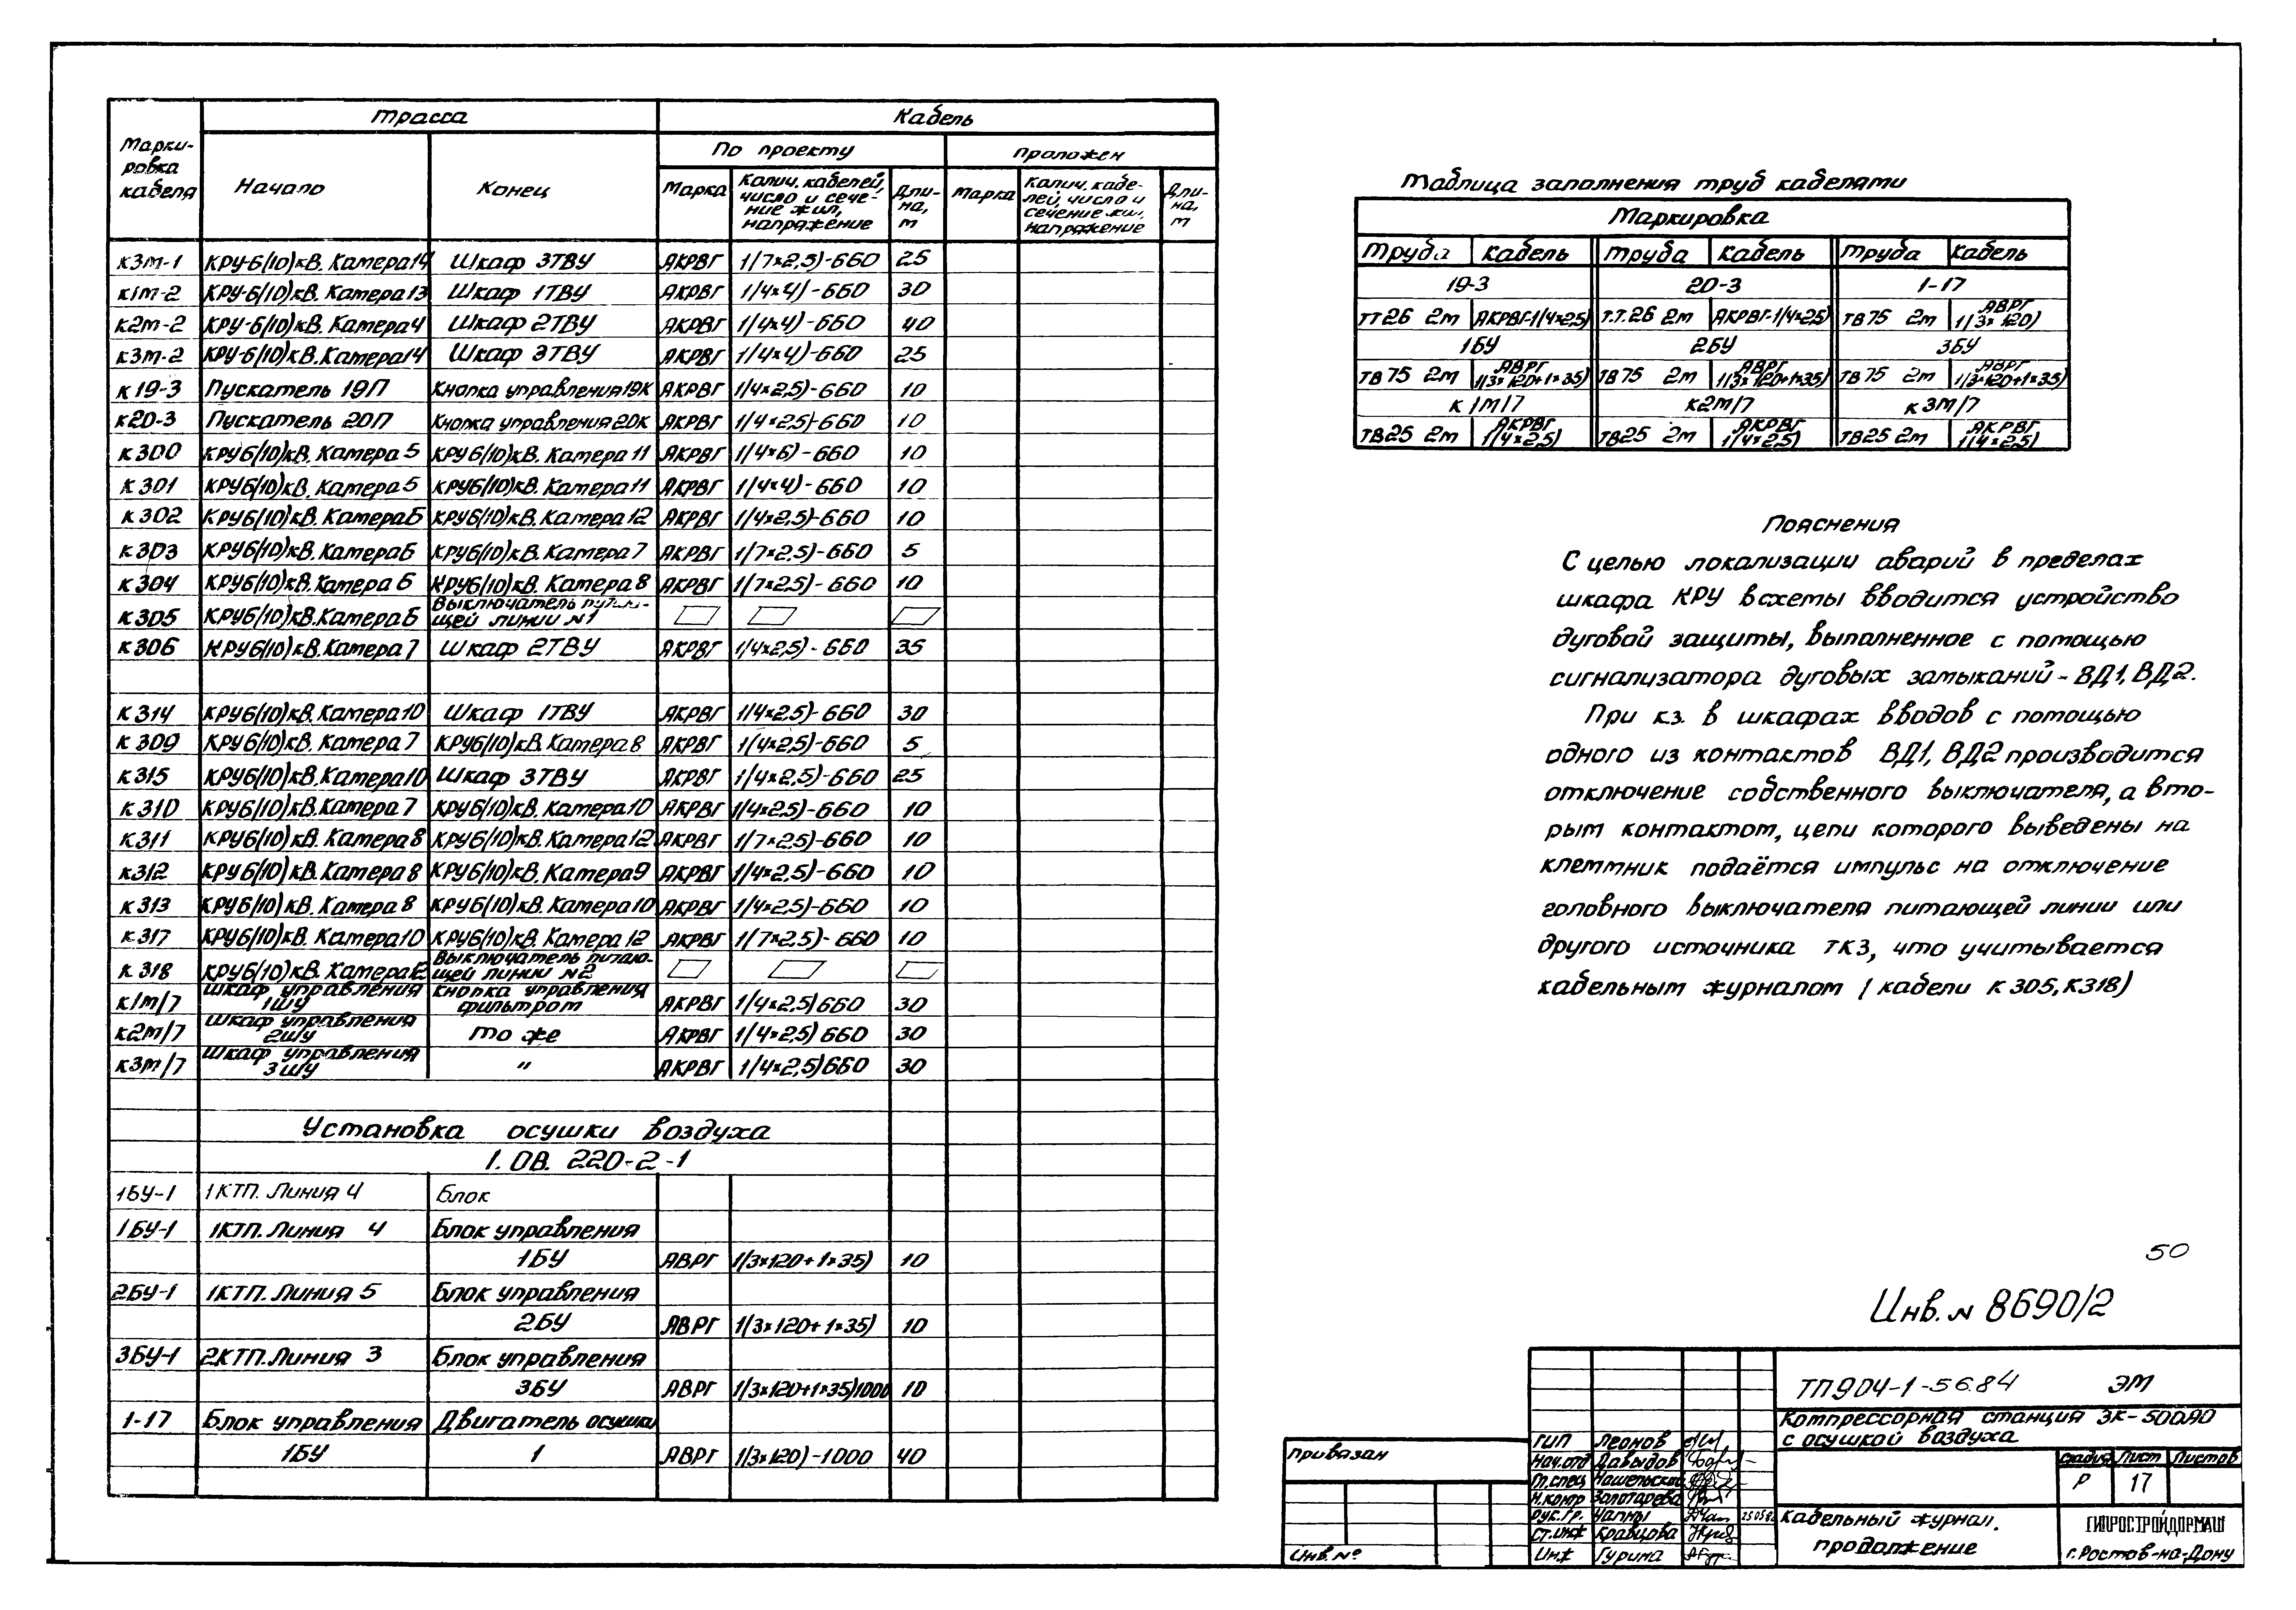 Маркировка кабеля | Трасса | Кабель
Начало | Конец | По проекту | Проложен
Марка | Колич. кабелей, число и сечение жил, напряжение | Длина, м | Марка | Колич. кабелей, число и сечение жил, напряжение | Длина, м
к3м-1 КРУ-6(10)кВ. Камера 14 Шкаф 3ТВУ АКРВГ 1(7×2,5)-660 25
к1м-2 КРУ-6(10)кВ. Камера 13 Шкаф 1ТВУ АКРВГ 1(4×4)-660 30
к2м-2 КРУ-6(10)кВ. Камера 4 Шкаф 2ТВУ АКРВГ 1(4×4)-660 40
к3м-2 КРУ-6(10)кВ. Камера 14 Шкаф 3ТВУ АКРВГ 1(4×4)-660 25
к19-3 Пускатель 19П Кнопка управления 19К АКРВГ 1(4×2,5)-660 10
к20-3 Пускатель 20П Кнопка управления 20К АКРВГ 1(4×2,5)-660 10
к300 КРУ6(10)кВ. Камера 5 КРУ6(10)кВ. Камера 11 АКРВГ 1(4×6)-660 10
к301 КРУ6(10)кВ. Камера 5 КРУ6(10)кВ. Камера 11 АКРВГ 1(4×4)-660 10
к302 КРУ6(10)кВ. Камера 6 КРУ6(10)кВ. Камера 12 АКРВГ 1(4×2,5)-660 10
к303 КРУ6(10)кВ. Камера 6 КРУ6(10)кВ. Камера 7 АКРВГ 1(7×2,5)-660 5
к304 КРУ6(10)кВ. Камера 6 КРУ6(10)кВ. Камера 8 АКРВГ 1(7×2,5)-660 10
к305 КРУ6(10)кВ. Камера 6 Выключатель питающей линии №1
к306 КРУ6(10)кВ. Камера 7 Шкаф 2ТВУ АКРВГ 1(4×2,5)-660 35
к314 КРУ6(10)кВ. Камера 10 Шкаф 1ТВУ АКРВГ 1(4×2,5)-660 30
к309 КРУ6(10)кВ. Камера 7 КРУ6(10)кВ. Камера 8 АКРВГ 1(4×2,5)-660 5
к315 КРУ6(10)кВ. Камера 10 Шкаф 3ТВУ АКРВГ 1(4×2,5)-660 25
к310 КРУ6(10)кВ. Камера 7 КРУ6(10)кВ. Камера 10 АКРВГ 1(4×2,5)-660 10
к311 КРУ6(10)кВ. Камера 8 КРУ6(10)кВ. Камера 12 АКРВГ 1(7×2,5)-660 10
к312 КРУ6(10)кВ. Камера 8 КРУ6(10)кВ. Камера 9 АКРВГ 1(4×2,5)-660 10
к313 КРУ6(10)кВ. Камера 8 КРУ6(10)кВ. Камера 10 АКРВГ 1(4×2,5)-660 10
к317 КРУ6(10)кВ. Камера 10 КРУ6(10)кВ. Камера 12 АКРВГ 1(7×2,5)-660 10
к318 КРУ6(10)кВ. Камера 12 Выключатель питающей линии №2
к1м/7 Шкаф управления 1ШУ Кнопка управления фильтром АКРВГ 1(4×2,5)660 30
к2м/7 Шкаф управления 2ШУ То же АКРВГ 1(4×2,5)660 30
к3м/7 Шкаф управления 3ШУ " АКРВГ 1(4×2,5)660 30
Установка осушки воздуха
1. ОВ. 220-2-1
1БУ-1 1КТП. Линия 4 Блок
1БУ-1 1КТП. Линия 4 Блок управления
1БУ АВРГ 1(3×120+1×35) 10
2БУ-1 1КТП. Линия 5 Блок управления
2БУ АВРГ 1(3×120+1×35) 10
3БУ-1 2КТП. Линия 3 Блок управления
3БУ АВРГ 1(3×120+1×35)1000 10
1-17 Блок управления Двигатель осушки
1БУ 1 АВРГ 1(3×120)-1000 40
Таблица заполнения труб кабелями
Маркировка
Труба Кабель Труба Кабель Труба Кабель
19-3 20-3 1-17
ТТ26 2м АКРВГ-1(4×2,5) Т.Т.26 2м АКРВГ-1(4×2,5) ТВ75 2м АВРГ 1(3×120)
1БУ 2БУ 3БУ
ТВ75 2м АВРГ 1(3×120+1×35) ТВ75 2м АВРГ 1(3×120+1×35) ТВ75 2м АВРГ 1(3×120+1×35)
к1м/7 к2м/7 к3м/7
ТВ25 2м АКРВГ 1(4×2,5) ТВ25 2м АКРВГ 1(4×2,5) ТВ25 2м АКРВГ 1(4×2,5)
Пояснения
С целью локализации аварий в пределах
шкафа КРУ в схемы вводится устройство
дуговой защиты, выполненное с помощью
сигнализатора дуговых замыканий - ВД1, ВД2.
При к.з. в шкафах вводов с помощью
одного из контактов ВД1, ВД2 производится
отключение собственного выключателя, а вто-
рым контактом, цепи которого выведены на
клеммник подаётся импульс на отключение
головного выключателя питающей линии или
другого источника ТКЗ, что учитывается
кабельным журналом (кабели к305, К318)
50
Инв. № 8690/2
ТП904-1-56.84 ЭМ
Компрессорная станция 3К-500АО
с осушкой воздуха
Стадия Лист Листов
Р 17
Кабельный журнал.
продолжение
ГИПРОСТРОЙДОРМАШ
г. Ростов-на-Дону
Привязан
Инв. №
ГИП Леонов
Нач.отд Давыдов
Н.контр Золотарева
Рук.гр.
Ст.инж Кравцова
Инж Гурина